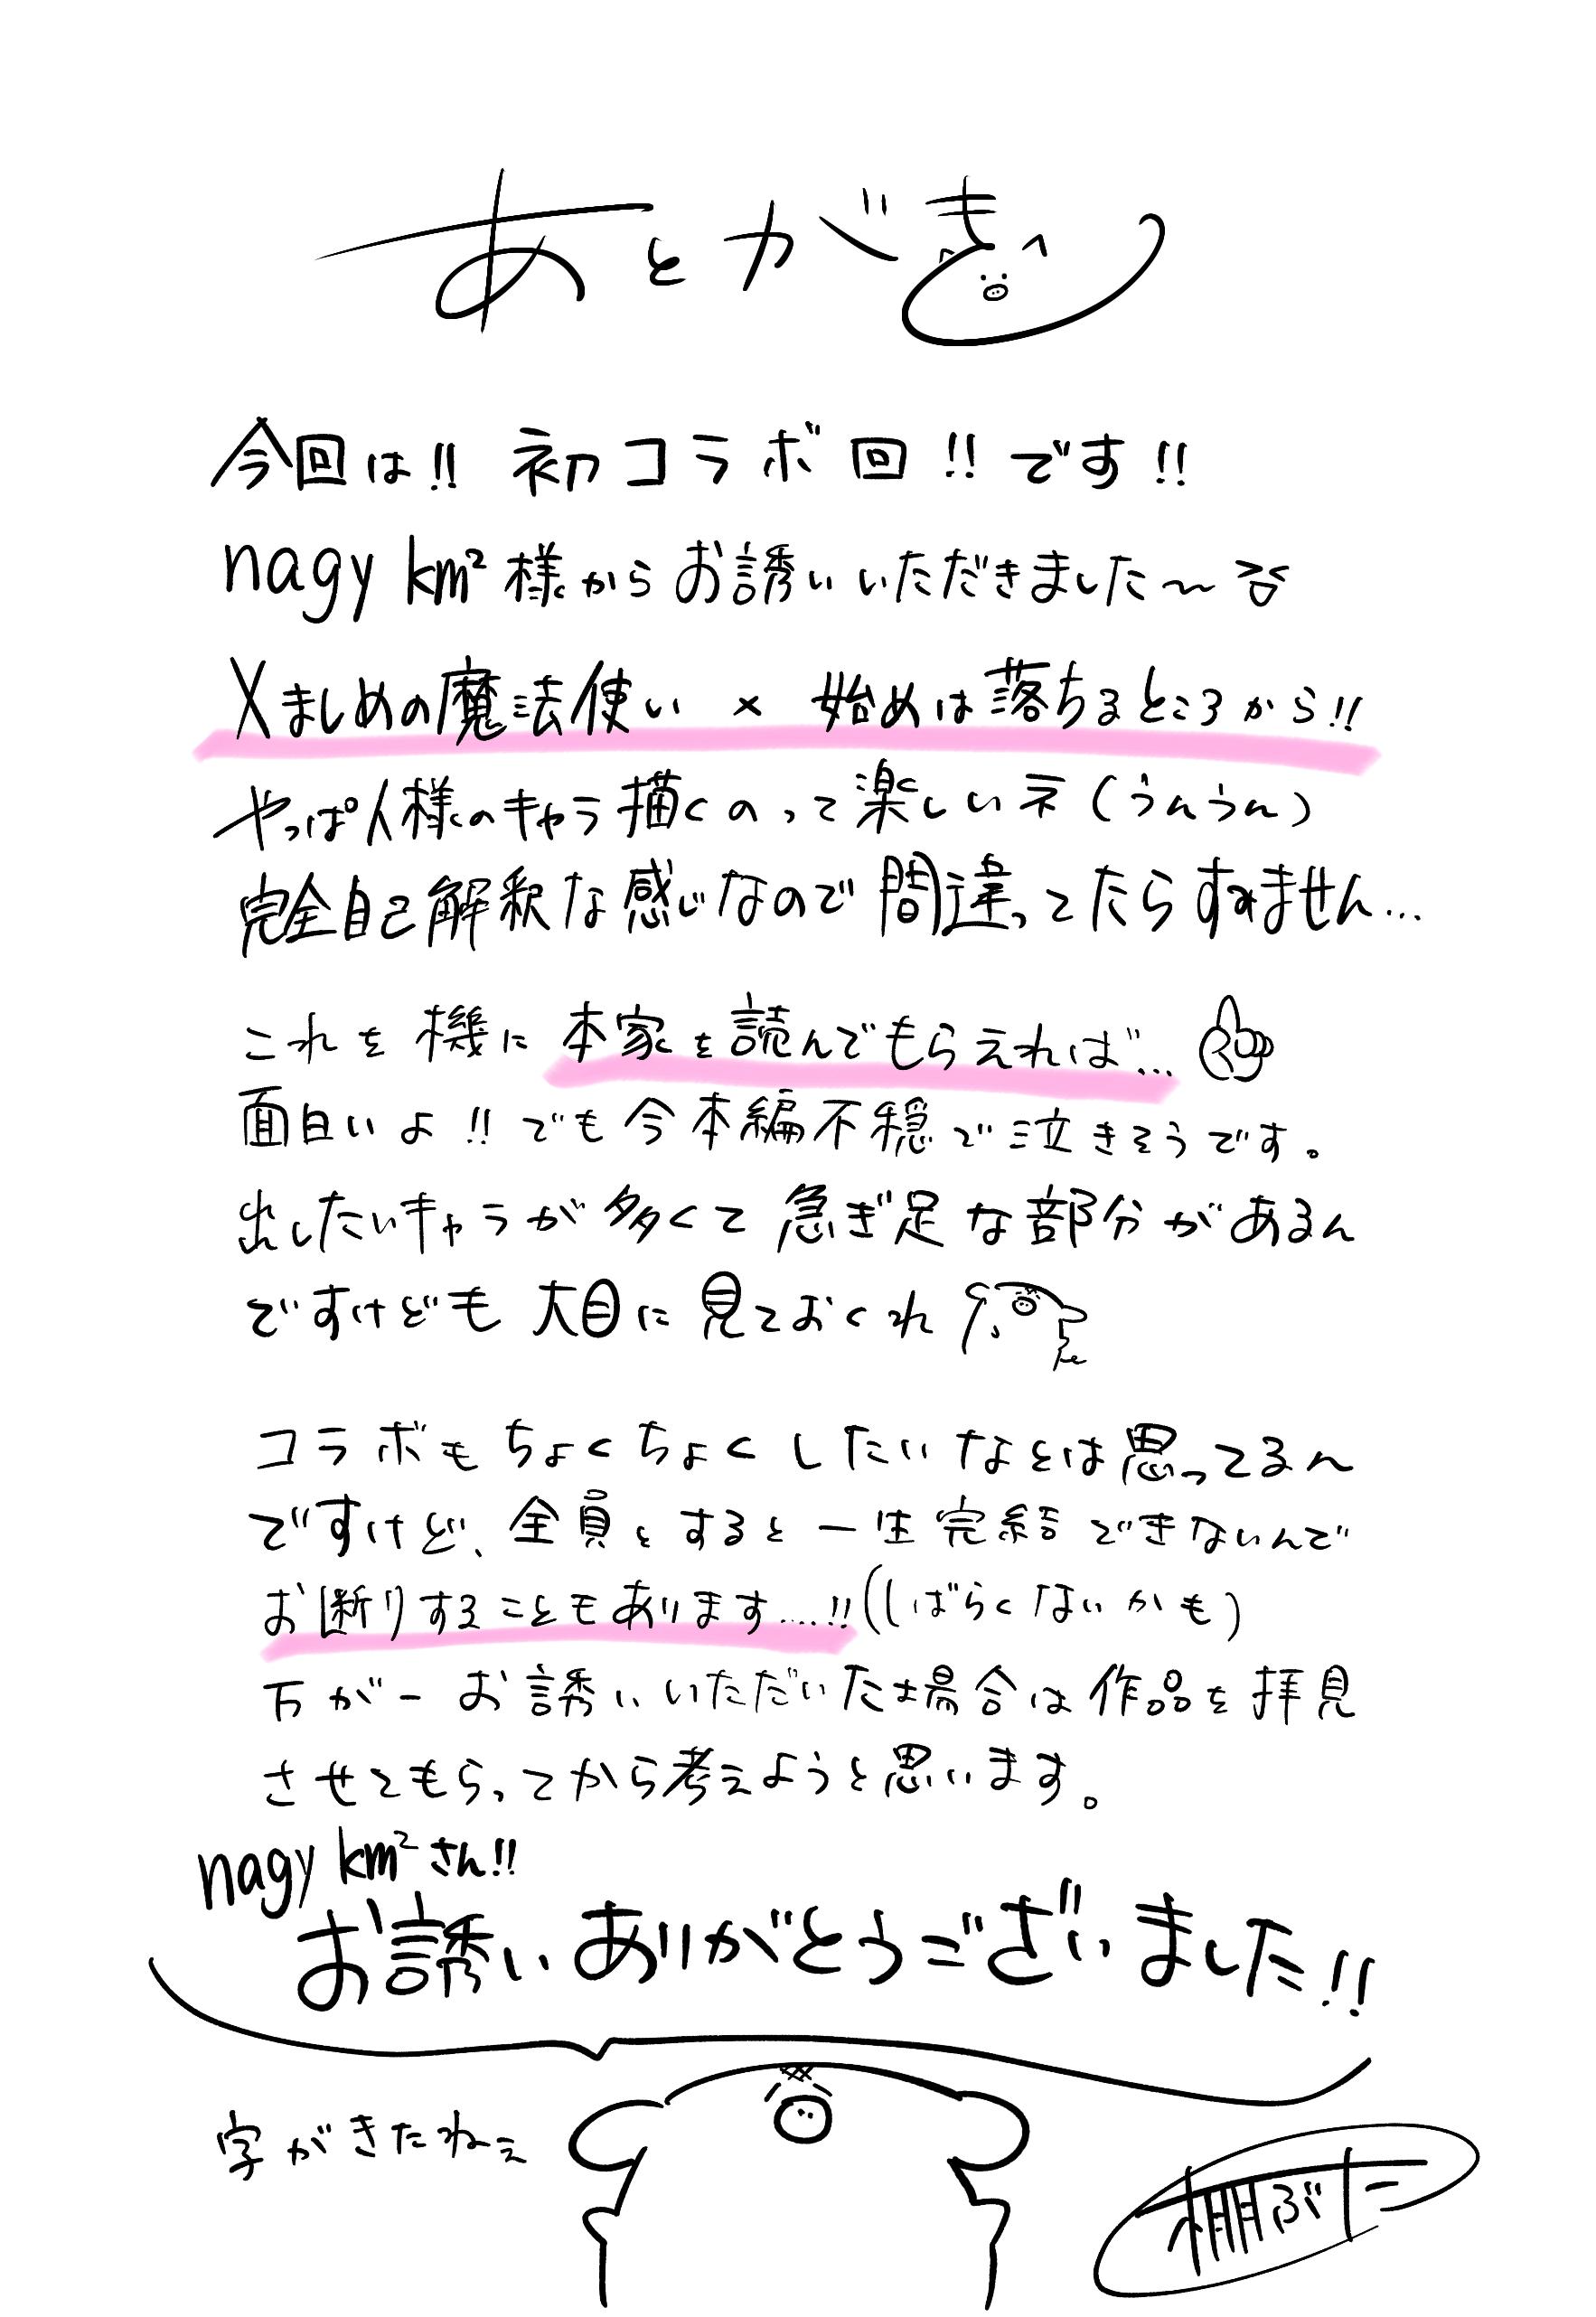 あとがき
今回は!! 初コラボ回!!です!!
nagy km²様からお誘いいただきました〜
Xましめの魔法使い × 始めは落ちるところから!!
やっぱ人様のキャラ描くのって楽しいネ(うんうん)
完全自己解釈な感じなので間違ってたらすみません…
これを機に本家を読んでもらえれば…
面白いよ!!でも今本編不穏で泣きそうです。
出したいキャラが多くて急ぎ足な部分があるん
ですけども大目に見ておくれ
コラボもちょくちょくしたいなとは思ってるん
ですけど、全員とすると一生完結できないんで
お断りすることもあります....!!(しばらくないかも)
万が一お誘いいただいた場合は作品を拝見
させてもらってから考えようと思います。
nagy km²さん!!
お誘いありがとうございました!!
字がきたねえ
棚ぶた